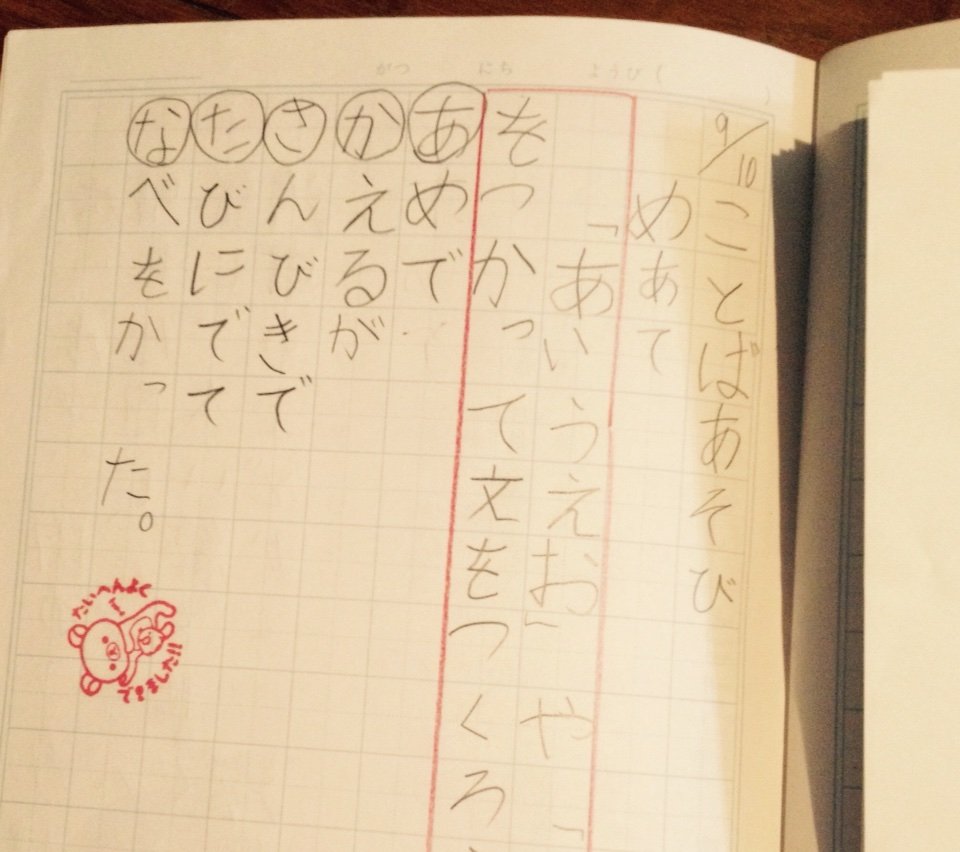 がつ にち ようび (
9/10 ことばあそび
めあて
「あいうえお」や「
をつかって文をつくろ
あめで
かえるが
さんびきで
たびにでて
なべをかった。
たいへんよく
できました!!